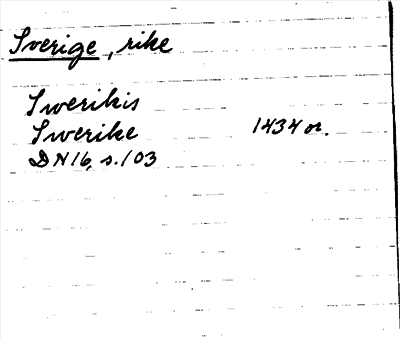 Sverige, rike
Swerikis
Swerike 1434 or.
DN16, s.103